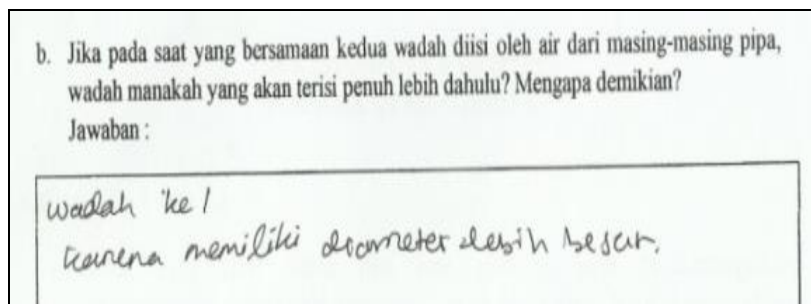 b. Jika pada saat yang bersamaan kedua wadah diisi oleh air dari masing-masing pipa,
wadah manakah yang akan terisi penuh lebih dahulu? Mengapa demikian?
Jawaban :
wadah ke 1
karena memiliki diameter lebih besar.